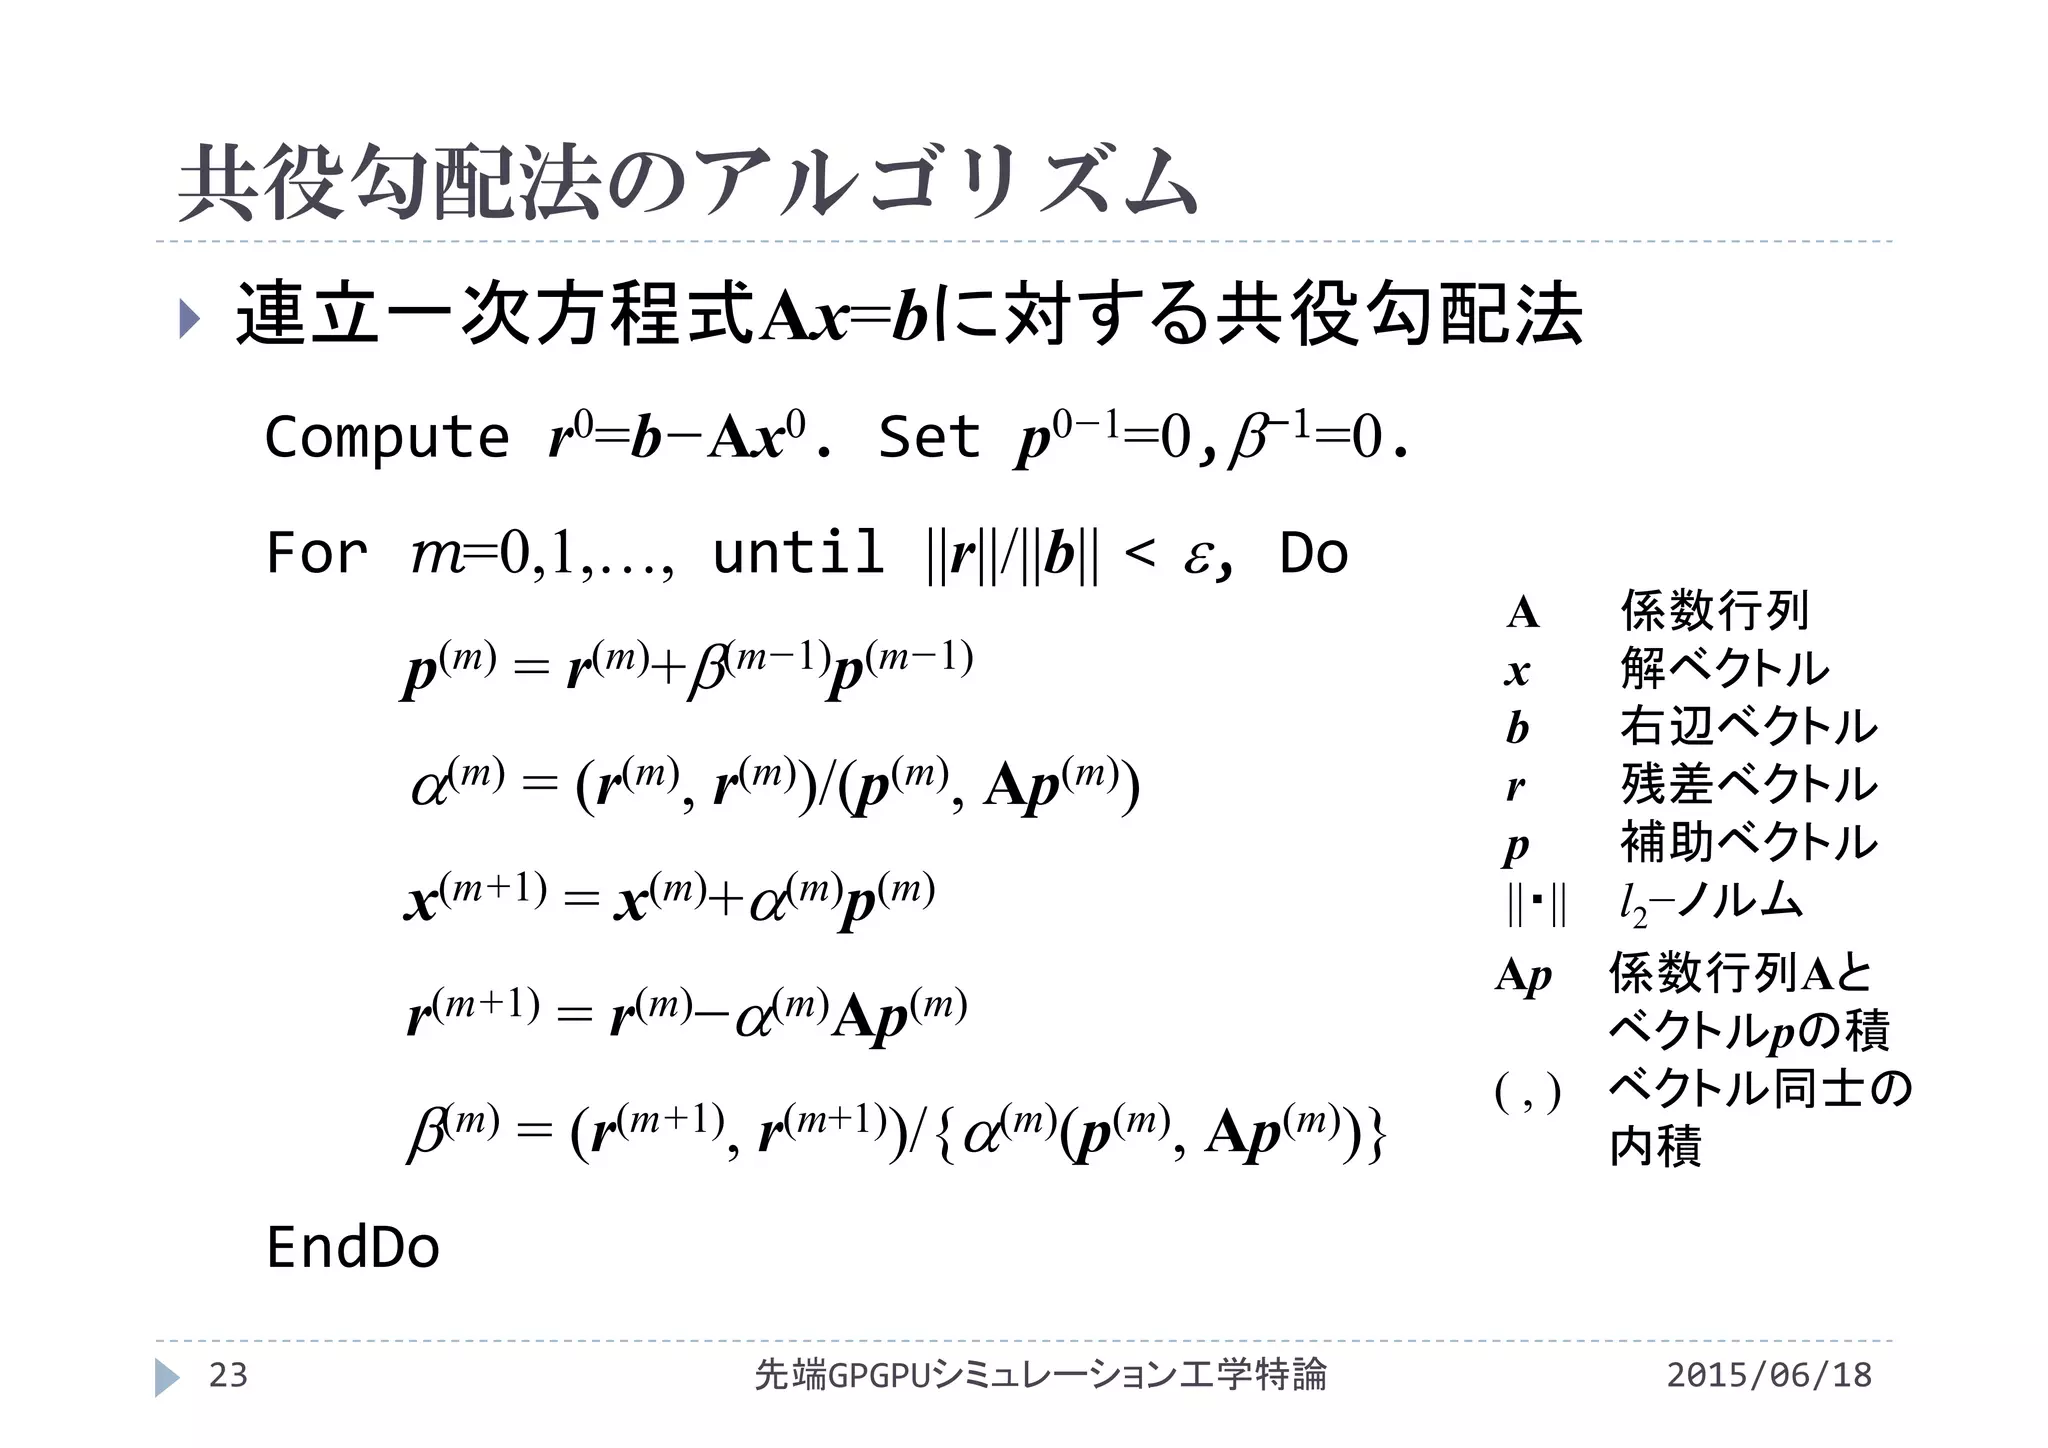 共役勾配法のアルゴリズム
連立一次方程式Ax=bに対する共役勾配法
Compute r⁰=b−Ax⁰. Set p⁰⁻¹=0,β⁻¹=0.
For m=0,1,…, until ||r||/||b|| < ε, Do
p⁽ᵐ⁾ = r⁽ᵐ⁾+β⁽ᵐ⁻¹⁾p⁽ᵐ⁻¹⁾
α⁽ᵐ⁾ = (r⁽ᵐ⁾, r⁽ᵐ⁾)/(p⁽ᵐ⁾, Ap⁽ᵐ⁾)
x⁽ᵐ⁺¹⁾ = x⁽ᵐ⁾+α⁽ᵐ⁾p⁽ᵐ⁾
r⁽ᵐ⁺¹⁾ = r⁽ᵐ⁾−α⁽ᵐ⁾Ap⁽ᵐ⁾
β⁽ᵐ⁾ = (r⁽ᵐ⁺¹⁾, r⁽ᵐ⁺¹⁾)/{α⁽ᵐ⁾(p⁽ᵐ⁾, Ap⁽ᵐ⁾)}
EndDo
A 係数行列
x 解ベクトル
b 右辺ベクトル
r 残差ベクトル
p 補助ベクトル
||・|| l₂−ノルム
Ap 係数行列Aと
ベクトルpの積
( , ) ベクトル同士の
内積
23 先端GPGPUシミュレーション工学特論 2015/06/18